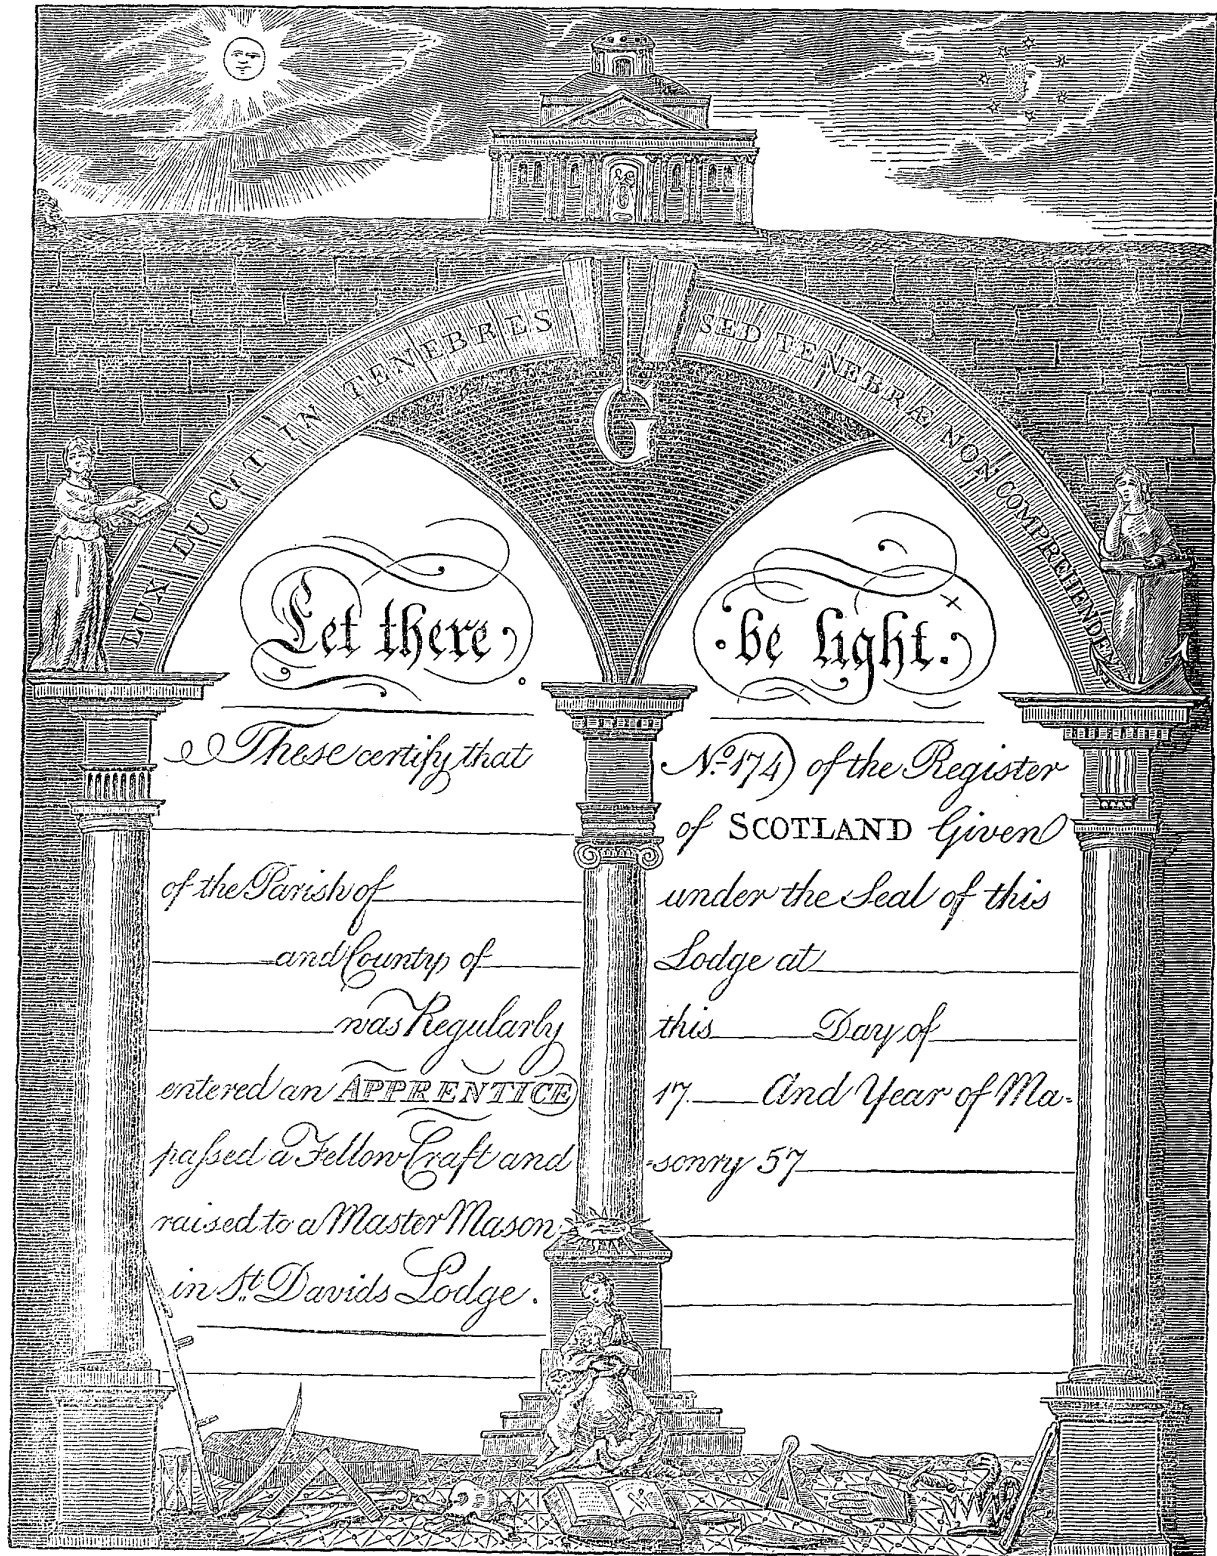 LUX LUCIT IN TENEBRES SED TENEBRÆ NON COMPREHENDE
G
Let there
be light.
These certify that
of the Parish of
and County of
was Regularly
entered an APPRENTICE
paſsed a Fellow Craft and
raised to a Master Mason
in St. Davids Lodge.
No. 174) of the Register
of SCOTLAND Given
under the Seal of this
Lodge at
this Day of
17 And Year of Ma-
-sonry 57